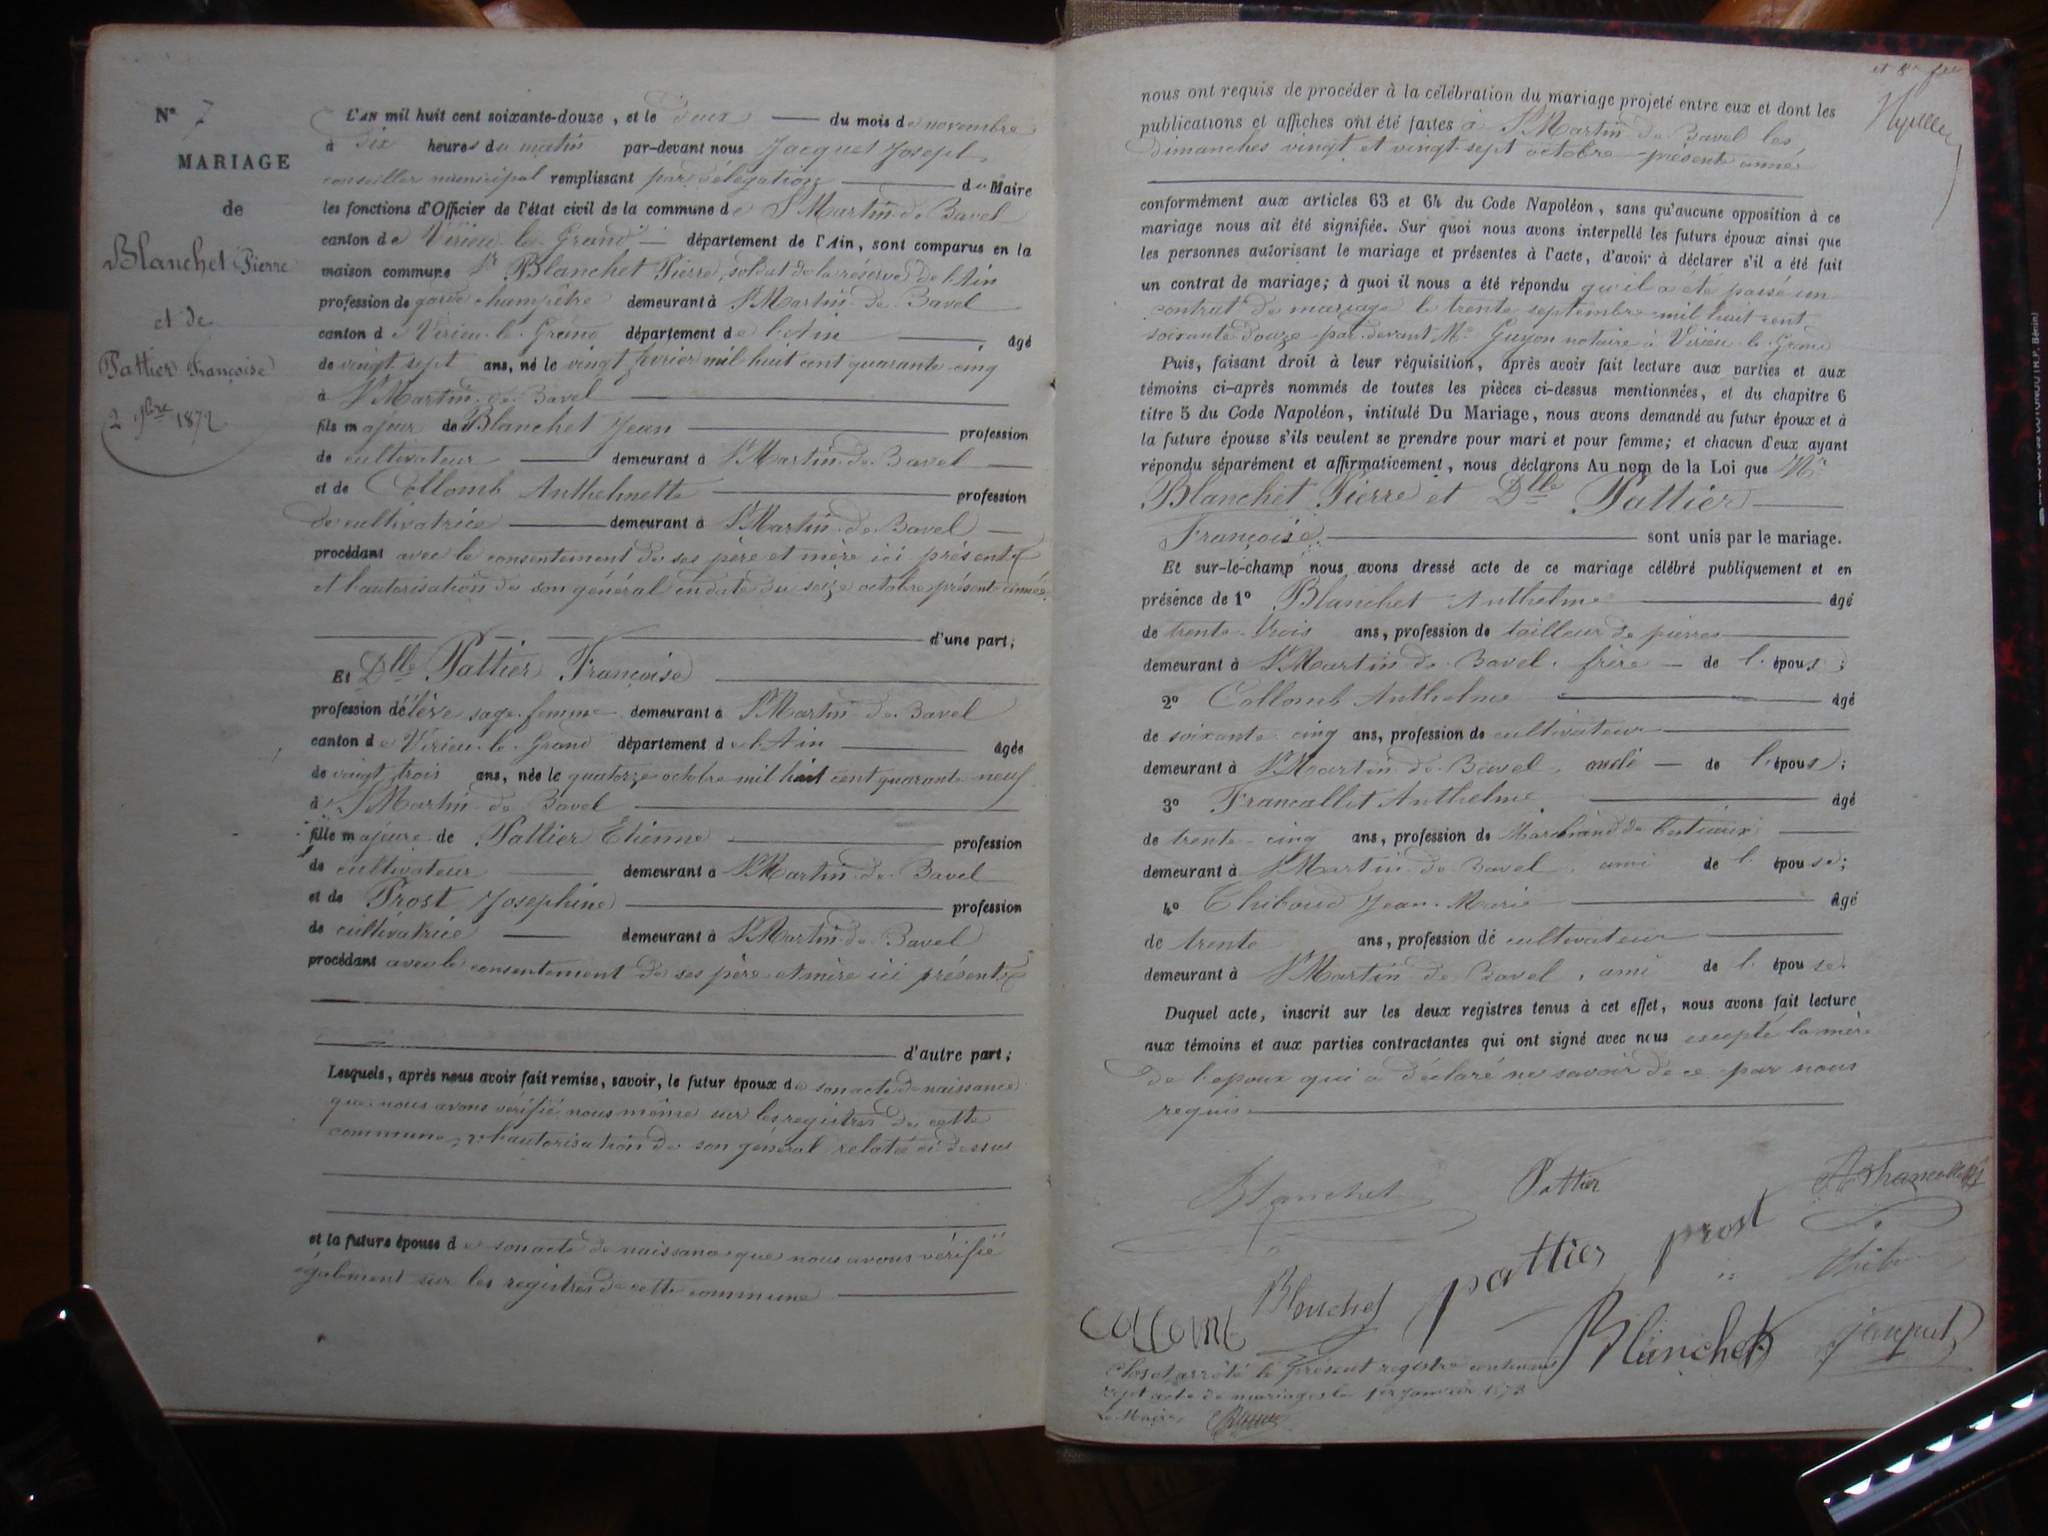 N° 7
MARIAGE
de
Blanchet Pierre
et de
Pattier Françoise
2 9bre 1872
L'AN mil huit cent soixante-douze, et le deux du mois de novembre
à dix heures du matin par-devant nous Jacquet Joseph
conseiller municipal remplissant par délégation du Maire
les fonctions d'Officier de l'état civil de la commune de St Martin de Bavel
canton de Virieu le Grand département de l'Ain, sont comparus en la
maison commune Sr Blanchet Pierre, soldat de la réserve de l'Ain
profession de garde champêtre demeurant à St Martin de Bavel
canton de Virieu le Grand département de l'Ain âgé
de vingt sept ans, né le vingt février mil huit cent quarante cinq
à St Martin de Bavel
fils majeur de Blanchet Jean profession
de cultivateur demeurant à St Martin de Bavel
et de Collomb Anthelmette profession
de cultivatrice demeurant à St Martin de Bavel
procédant avec le consentement de ses père et mère ici présents
et l'autorisation de son général en date du seize octobre présente année
d'une part;
Et Dlle Pattier Françoise
profession d'élève sage femme demeurant à St Martin de Bavel
canton de Virieu le Grand département de l'Ain âgée
de vingt trois ans, née le quatorze octobre mil huit cent quarante neuf
à St Martin de Bavel
fille majeure de Pattier Etienne profession
de cultivateur demeurant à St Martin de Bavel
et de Prost Josephine profession
de cultivatrice demeurant à St Martin de Bavel
procédant avec le consentement de ses père et mère ici présents
d'autre part;
Lesquels, après nous avoir fait remise, savoir, le futur époux de son acte de naissance
que nous avons vérifié nous même sur les registres de cette
commune, l'autorisation de son général relatée ci dessus
et la future épouse de son acte de naissance que nous avons vérifié
également sur les registres de cette commune
nous ont requis de procéder à la célébration du mariage projeté entre eux et dont les
publications et affiches ont été faites à St Martin de Bavel les
dimanches vingt et vingt-sept octobre présente année
conformément aux articles 63 et 64 du Code Napoléon, sans qu'aucune opposition à ce
mariage nous ait été signifiée. Sur quoi nous avons interpellé les futurs époux ainsi que
les personnes autorisant le mariage et présentes à l'acte, d'avoir à déclarer s'il a été fait
un contrat de mariage; à quoi il nous a été répondu qu'il a été passé un
contrat de mariage le trente septembre mil huit cent
soixante douze par devant Me Guyon notaire à Virieu le Grand
Puis, faisant droit à leur réquisition, après avoir fait lecture aux parties et aux
témoins ci-après nommés de toutes les pièces ci-dessus mentionnées, et du chapitre 6
titre 5 du Code Napoléon, intitulé Du Mariage, nous avons demandé au futur époux et à
la future épouse s'ils veulent se prendre pour mari et pour femme; et chacun d'eux ayant
répondu séparément et affirmativement, nous déclarons Au nom de la Loi que Mr
Blanchet Pierre et Dlle Pattier
Françoise sont unis par le mariage.
Et sur-le-champ nous avons dressé acte de ce mariage célébré publiquement et en
présence de 1° Blanchet Anthelme âgé
de trente-trois ans, profession de tailleur de pierres
demeurant à St Martin de Bavel, frère de l'époux;
2° Collomb Anthelme âgé
de soixante cinq ans, profession de cultivateur
demeurant à St Martin de Bavel, oncle de l'époux;
3° Francallet Anthelme âgé
de trente-cinq ans, profession de Marchand de bestiaux
demeurant à St Martin de Bavel, ami de l'épouse;
4° Thiboud Jean-Marie âgé
de trente ans, profession de cultivateur
demeurant à St Martin de Bavel, ami de l'épouse.
Duquel acte, inscrit sur les deux registres tenus à cet effet, nous avons fait lecture
aux témoins et aux parties contractantes qui ont signé avec nous excepté la mère
de l'époux qui a déclaré ne savoir de ce par nous
requis
Blanchet Pattier
pattier prost
Collomb Blanchet
Blanchet Jacquet
Clos et arrêté le présent registre contenant
sept acte de mariages le 1er Janvier 1873
Le Maire